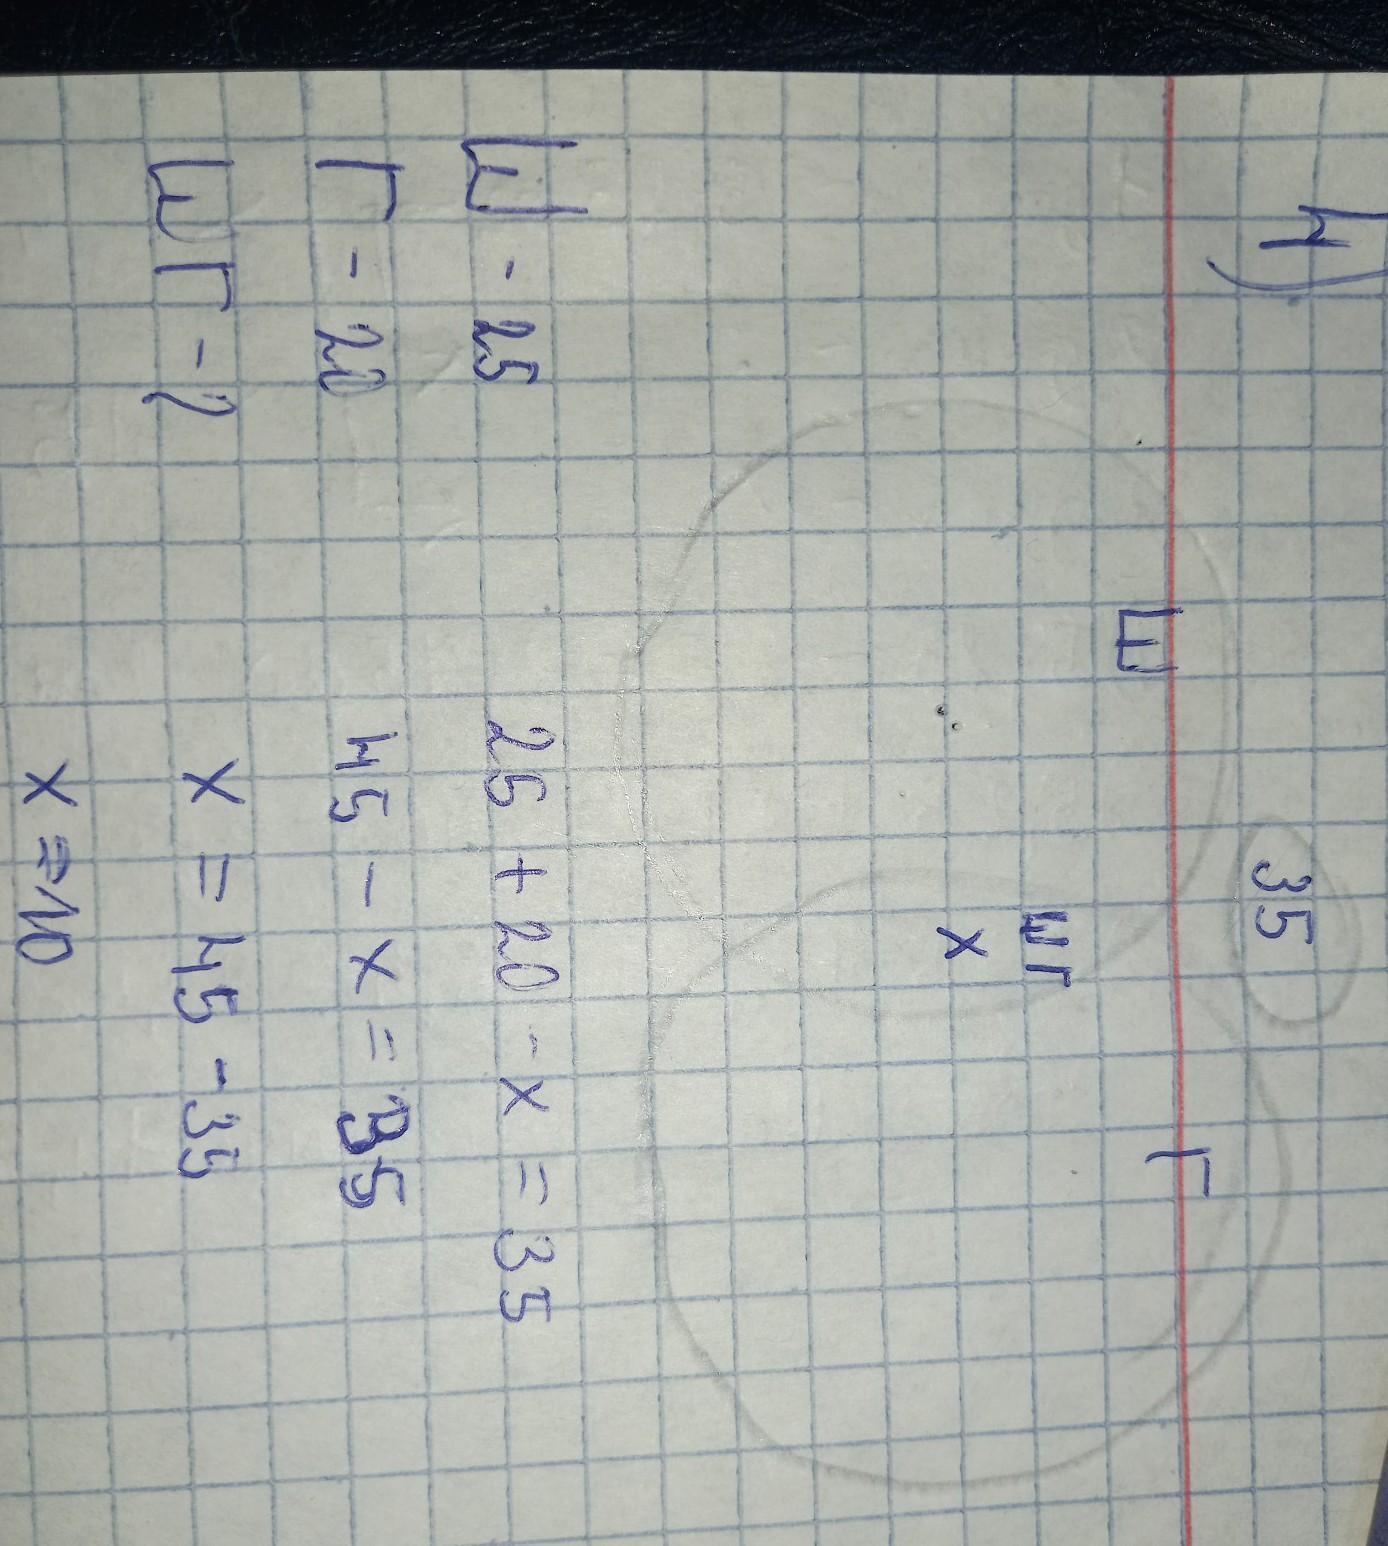 4)
35
Ш
Г
шг
х
Ш - 25
25 + 20 - х = 35
Г - 20
45 - х = 35
ШГ - ?
х = 45 - 35
х = 10